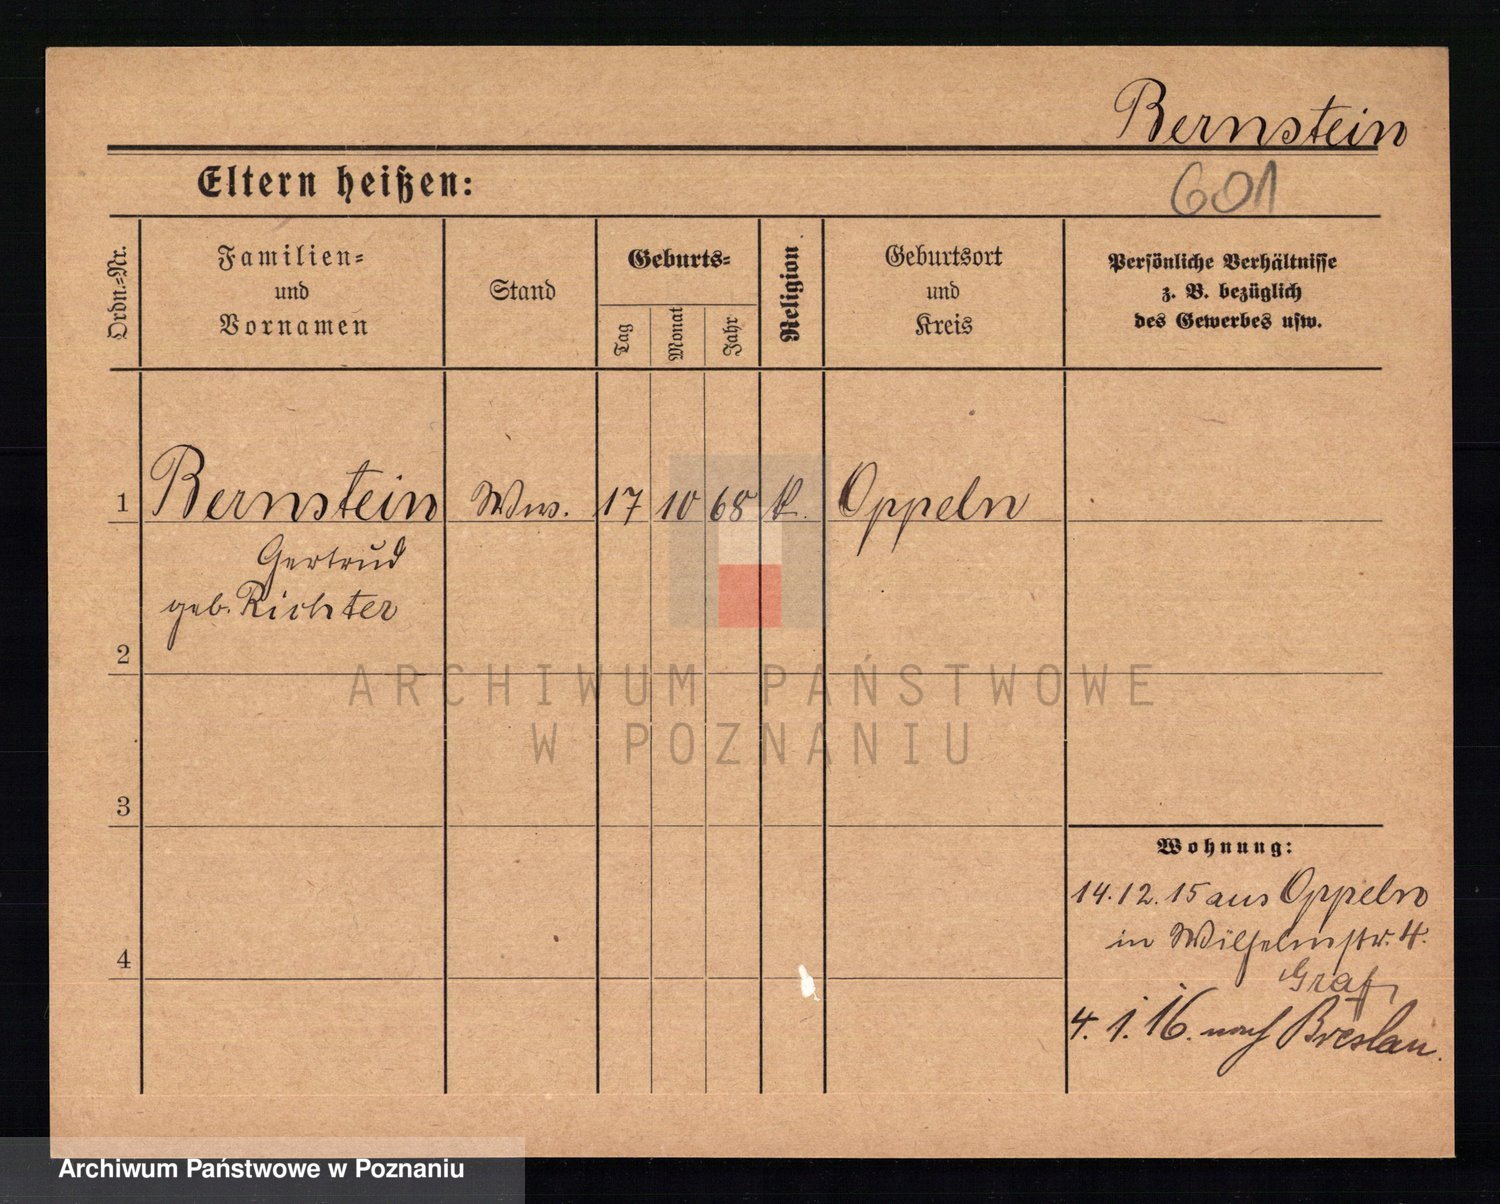 Bernstein
Eltern heißen:
601
Ordn.=Nr.
Familien=
und
Vornamen
Stand
Geburts=
Tag
Monat
Jahr
Religion
Geburtsort
und
Kreis
Persönliche Verhältnisse
z. B. bezüglich
des Gewerbes usw.
1 Bernstein Ww. 17 10 68 k. Oppeln
Gertrud
geb. Richter
2
3
4
Wohnung:
14.12.15 aus Oppeln
in Wilhelmstr. 4.
Graf
4. 1. 16. nach Breslau.
ARCHIWUM PAŃSTWOWE
W POZNANIU
Archiwum Państwowe w Poznaniu